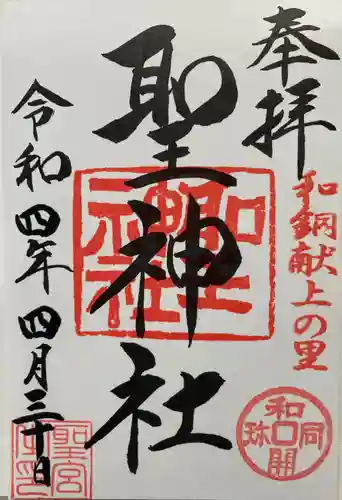 奉拝
和銅献上の里
聖神社
令和四年四月三十日
和同開珎